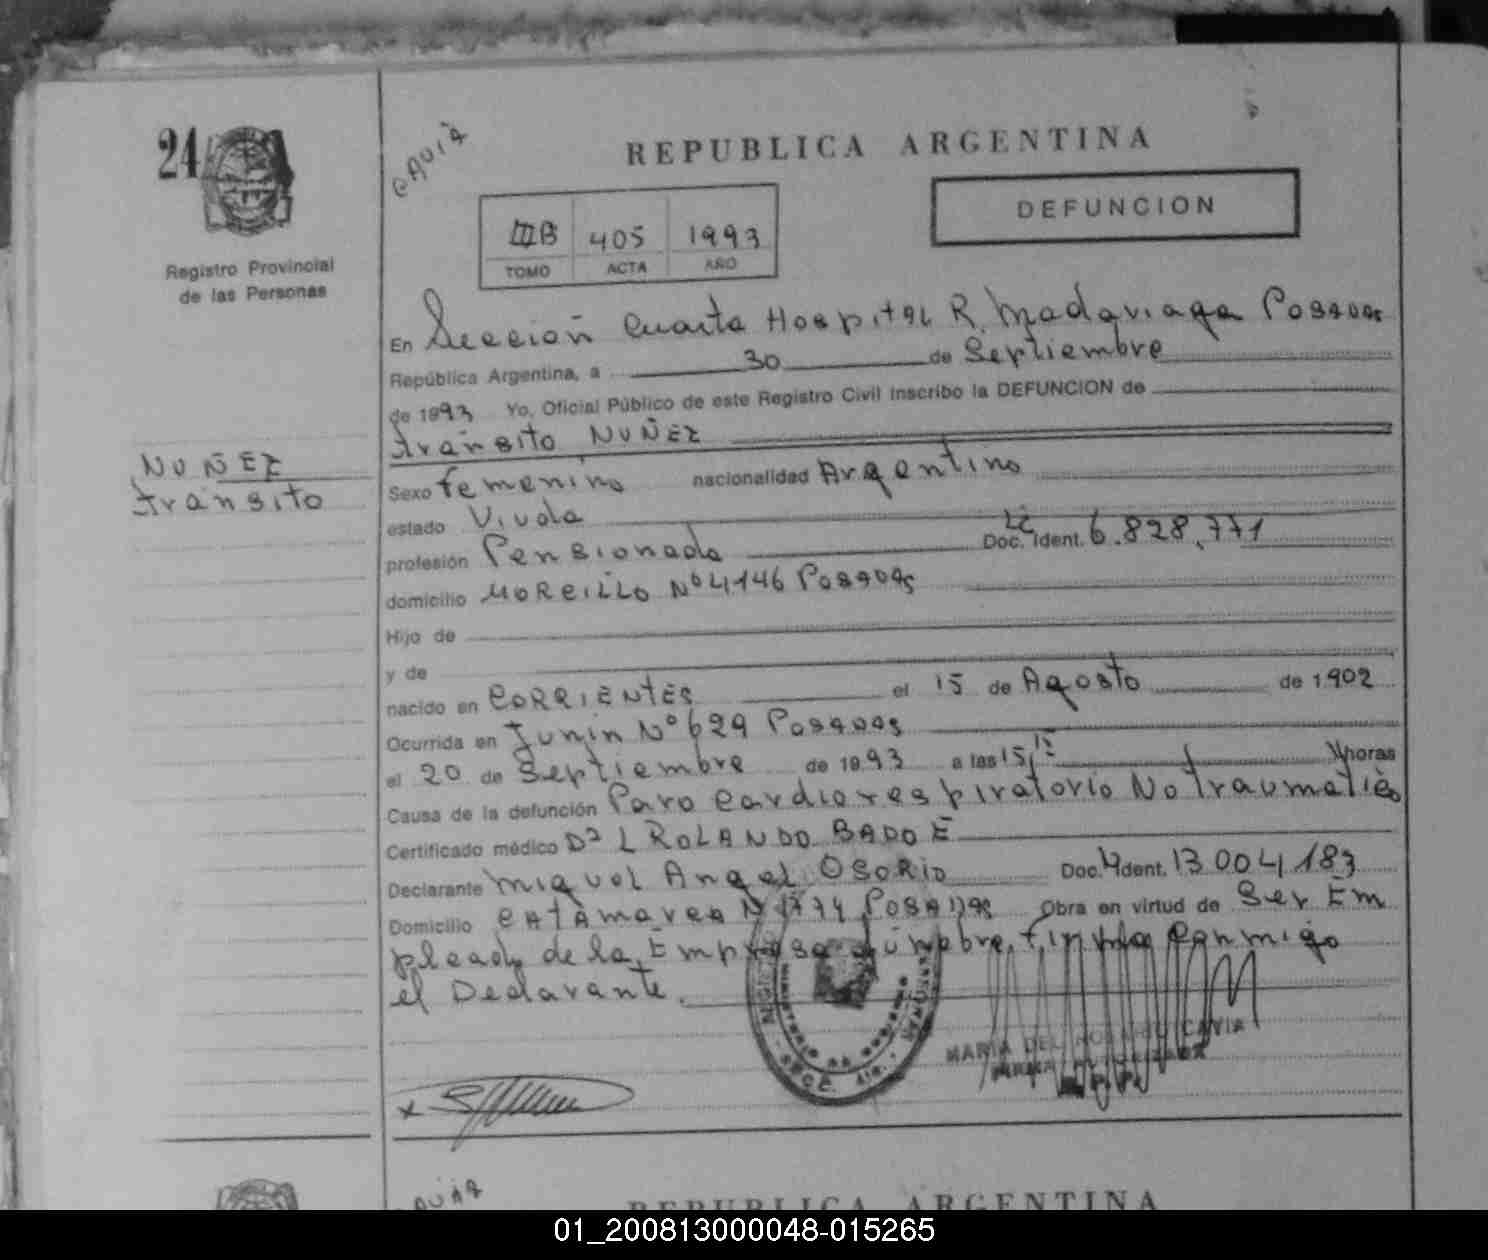 24
CAVIA
REPUBLICA ARGENTINA
DEFUNCION
IIIB 405 1993
TOMO ACTA AÑO
Registro Provincial
de las Personas
En Sección Cuarta Hospital R. Madariaga Posadas
República Argentina, a 30 de Septiembre
de 1993 Yo, Oficial Público de este Registro Civil inscribo la DEFUNCION de
tránsito NUÑEZ
NUÑEZ
tránsito
Sexo femenino nacionalidad Argentino
estado Viuda
profesión Pensionada Doc. Ident. 6.828.771
domicilio MOREILLO Nº 4146 Posadas
Hijo de
y de
nacido en CORRIENTES el 15 de Agosto de 1902
Ocurrida en Junin Nº 629 Posadas
el 20 de Septiembre de 1993 a las 15,15 horas
Causa de la defunción Paro cardiorespiratorio No traumatico
Certificado médico Dr L ROLANDO BADOE
Declarante Miguel Angel OSORIO Doc. Ident. 13004183
Domicilio CATAMARCA N 1774 POSADAS Obra en virtud de Ser Em
pleado de la Empresa fúnebre, firma conmigo
el Declarante.
MARIA DEL ROSARIO CAVIA
x
REPUBLICA ARGENTINA
01_200813000048-015265